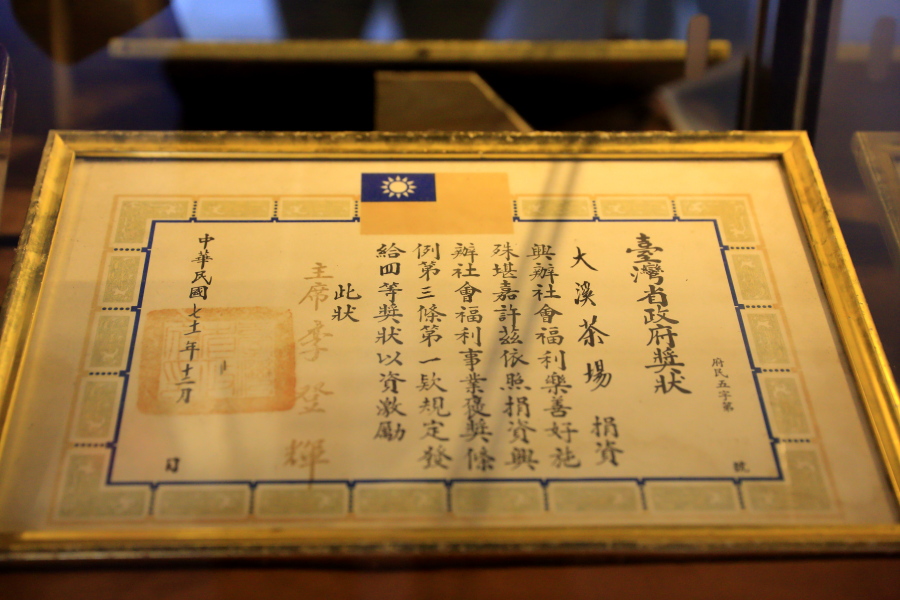 臺灣省政府獎狀
府民五字第
號
大溪茶場 捐資
興辦社會福利樂善好施
殊堪嘉許茲依照捐資興
辦社會福利事業褒獎條
例第三條第一款規定發
給四等獎狀以資激勵
此狀
主席李登輝
中華民國七十一年十二月
日